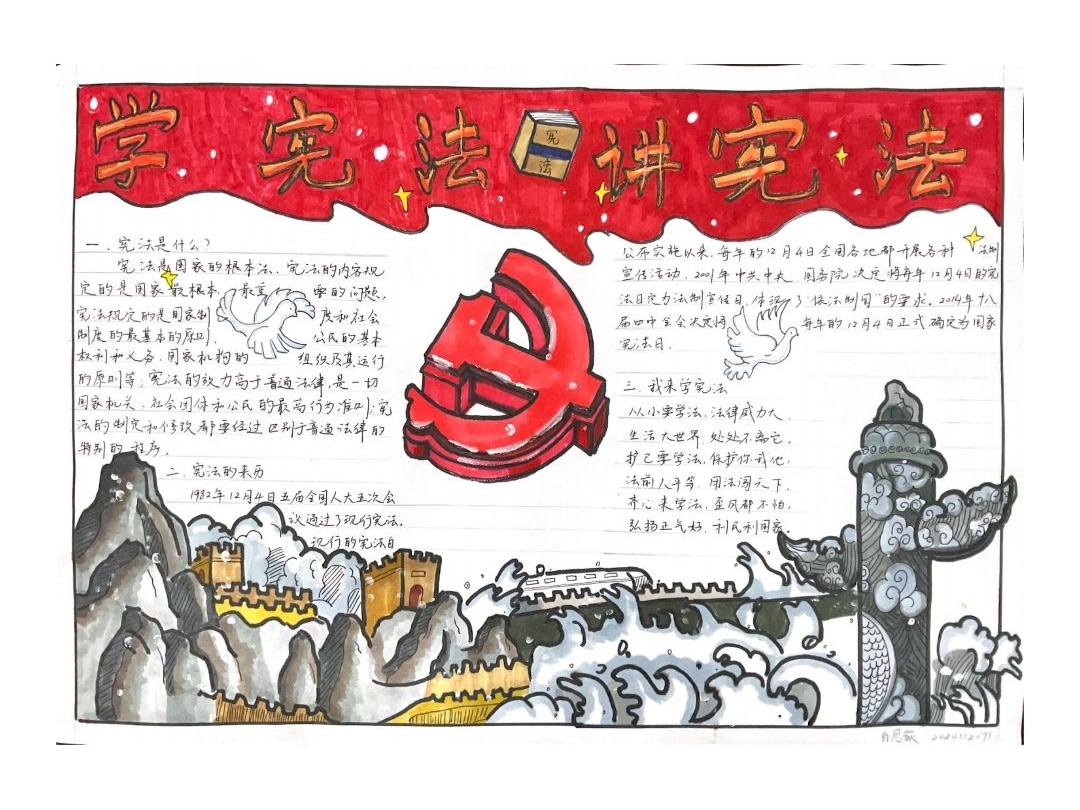 学宪法讲宪法
宪
法
一、宪法是什么？
宪法是国家的根本法、宪法的内容规
定的是国家最根本、最重要的问题，
宪法规定的是国家制度和社会
制度的最基本的原则，公民的基本
权利和义务、国家机构的组织及其运行
的原则等；宪法的效力高于普通法律，是一切
国家机关、社会团体和公民的最高行为准则；宪
法的制定和修改都要经过区别于普通法律的
特别的程序。
二、宪法的来历
1982年12月4日五届全国人大五次会
议通过了现行宪法，
现行的宪法自
公布实施以来、每年的12月4日全国各地都开展各种法制
宣传活动。2001年中共中央国务院决定将每年12月4日的宪
法日定为法制宣传日，体现了“依法制国”的要求。2014年十八
届四中全会决定将每年的12月4日正式确定为国家
宪法日。
三、我来学宪法
从小要学法、法律威力大、
生活大世界、处处不离它、
护己要学法、保护你我他，
法前人平等、用法闯天下，
齐心来学法、歪风都不怕，
弘扬正气好、利民利国家。